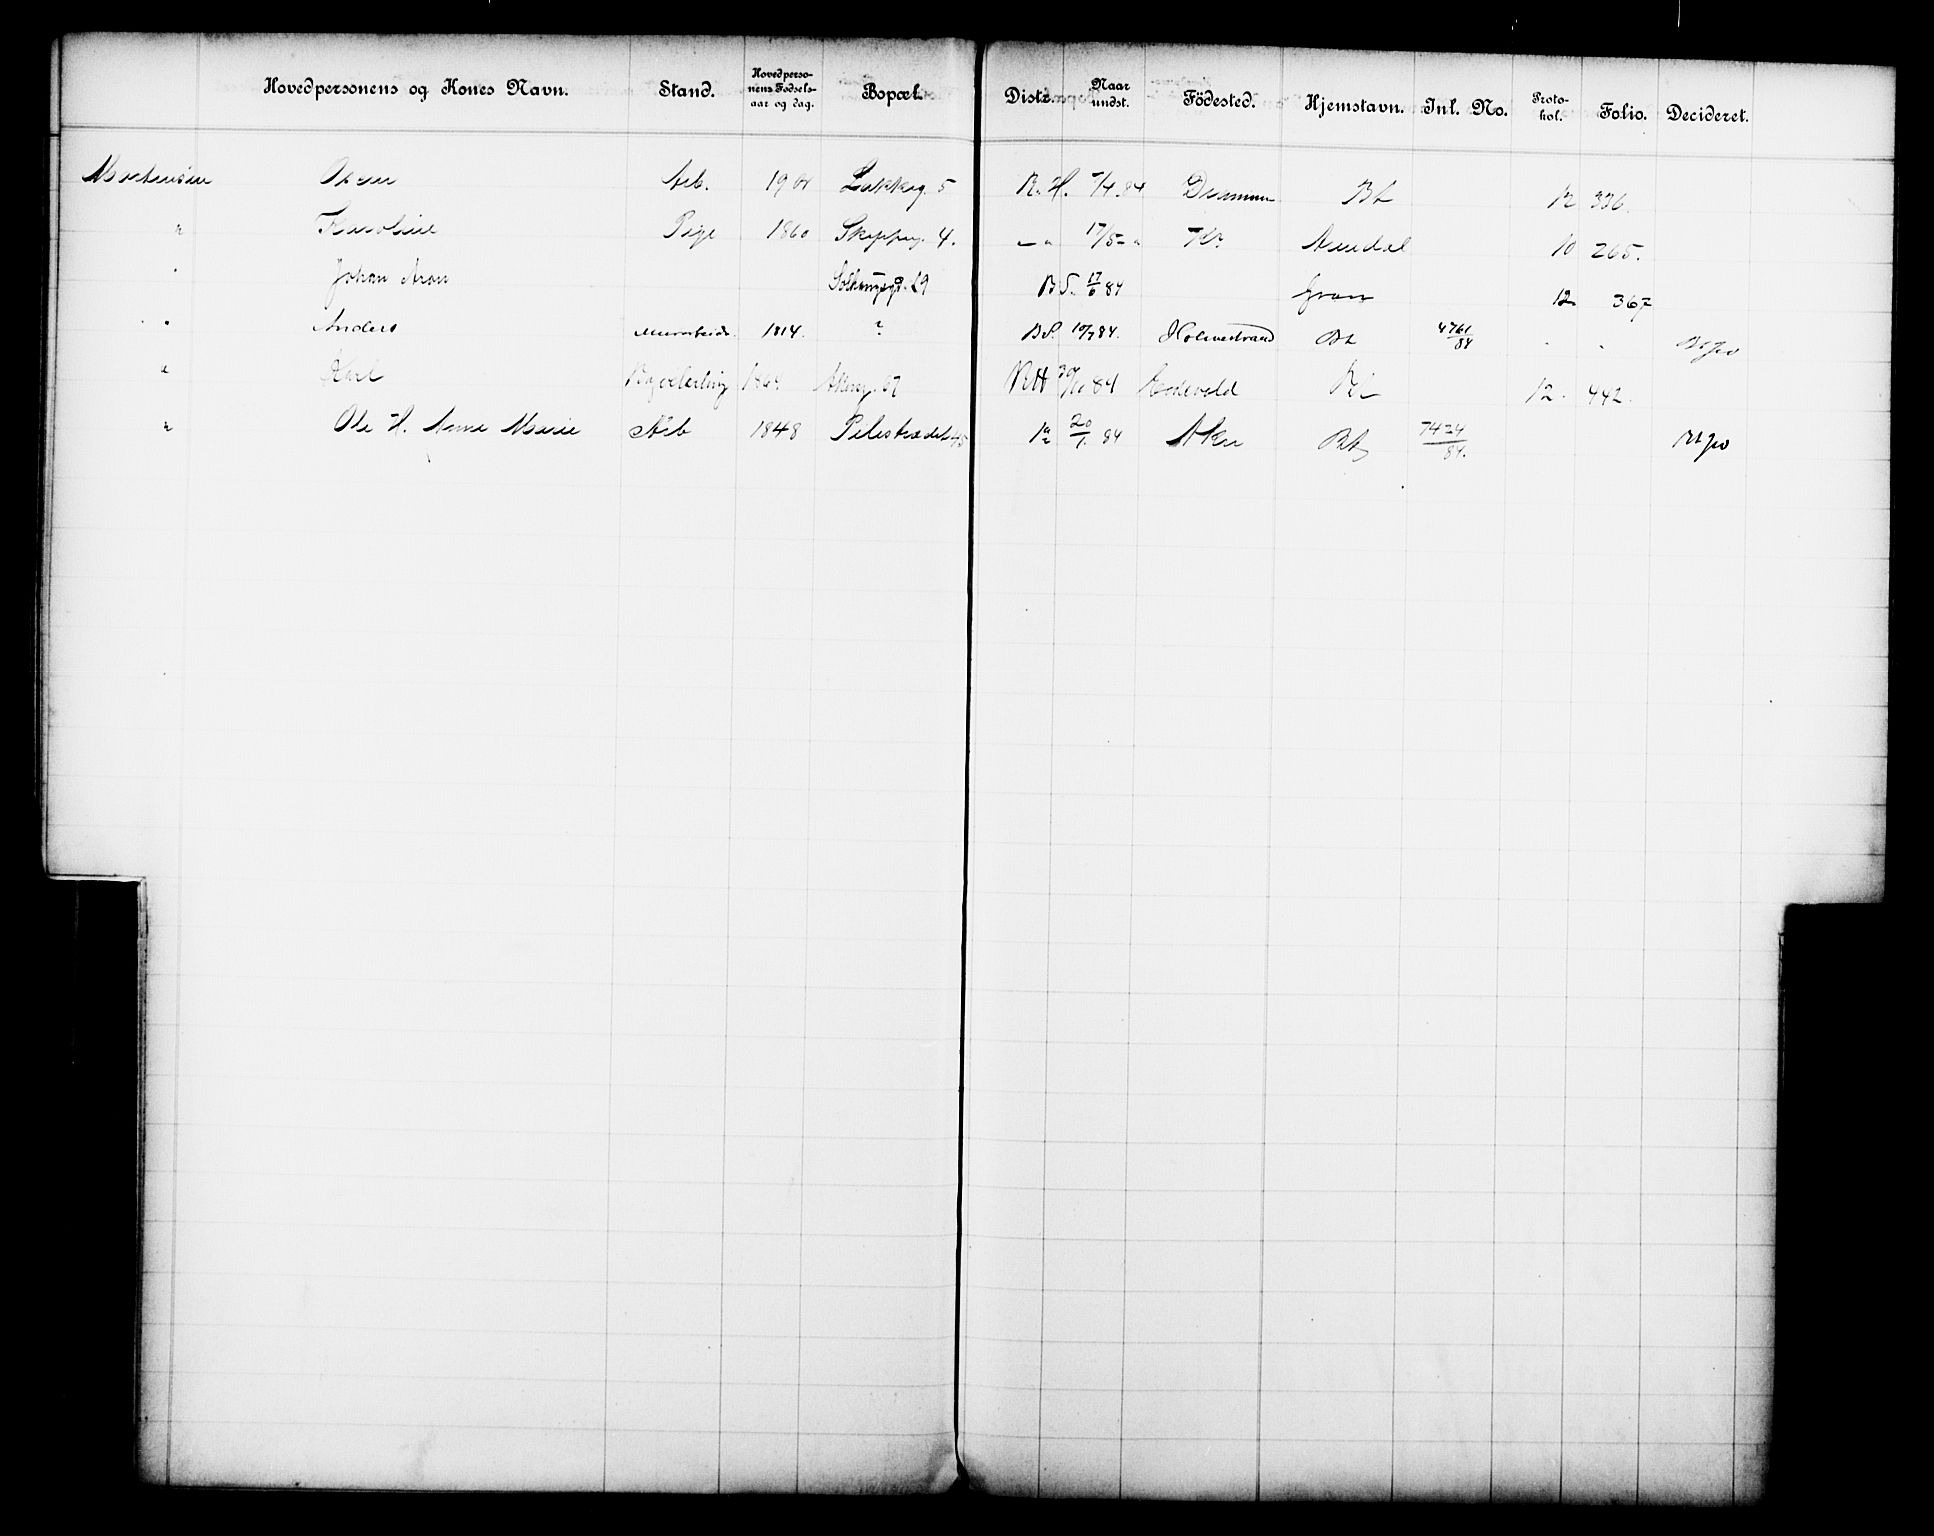 Hovedpersonens og Kones Navn. Stand. Hovedpersonens Fødselsaar og dag. Bopæl. Distr. Naar undst. Födested. Hjemstavn. Inl. No. Protokol. Folio. Decideret.
Mortensen Arb. Lakkeg. 5 R. H. 7/4.84 Drammen Bh 12 336.
" Karoline Pige 1860 Skipperg. 4. – " 17/5 – " Kr. Arendal 10 265.
" Johan Aron 29 B S. 17/6 84 Gran 12 367
" Anders Murarbeid. 1814. ? B S. 10/7 84. Holmestrand Bh 4761/84 " "
" Karl 67 RH 30/10 84 12. 442.
" Ole H. Anna Marie Arb 1848 Pilestrædet 45 20/1. 84 Aker 7424/84.